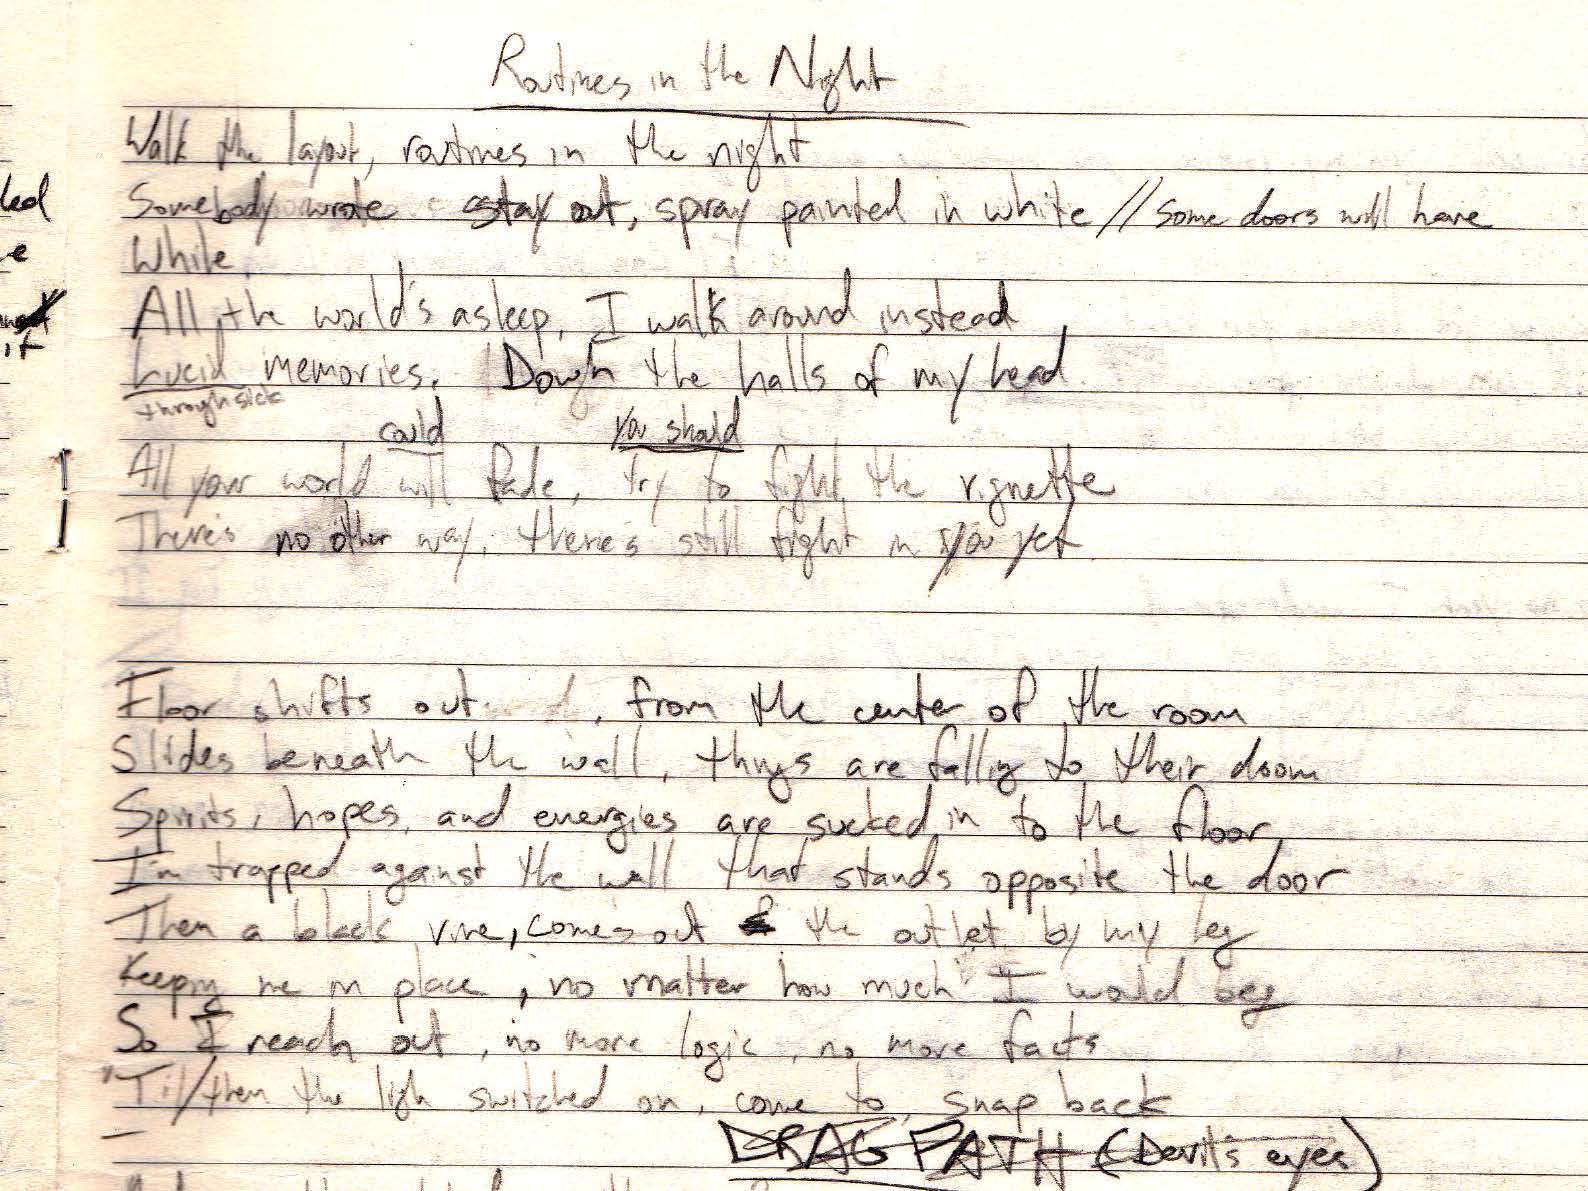 Routines in the Night
Walk the layout, routines in the night
Somebody wrote stay out, spray painted in white // Some doors will have
White.
All the world's asleep, I walk around instead
Lucid memories. Down the halls of my head
through sick
could you should
All your world will fade, try to fight the vignette
There's no other way, there's still fight in you yet.
Floor shifts out , from the center of the room
Slides beneath the wall, things are falling to their doom
Spirits, hopes, and energies are sucked in to the floor
I'm trapped against the wall that stands opposite the door
Then a black vine, comes out the outlet by my leg
Keeping me in place, no matter how much I would beg
So I reach out, no more logic, no more facts
'Til/then the ligh switched on, come to, snap back
DRAG PATH (Devil's eyes)
led
e
it